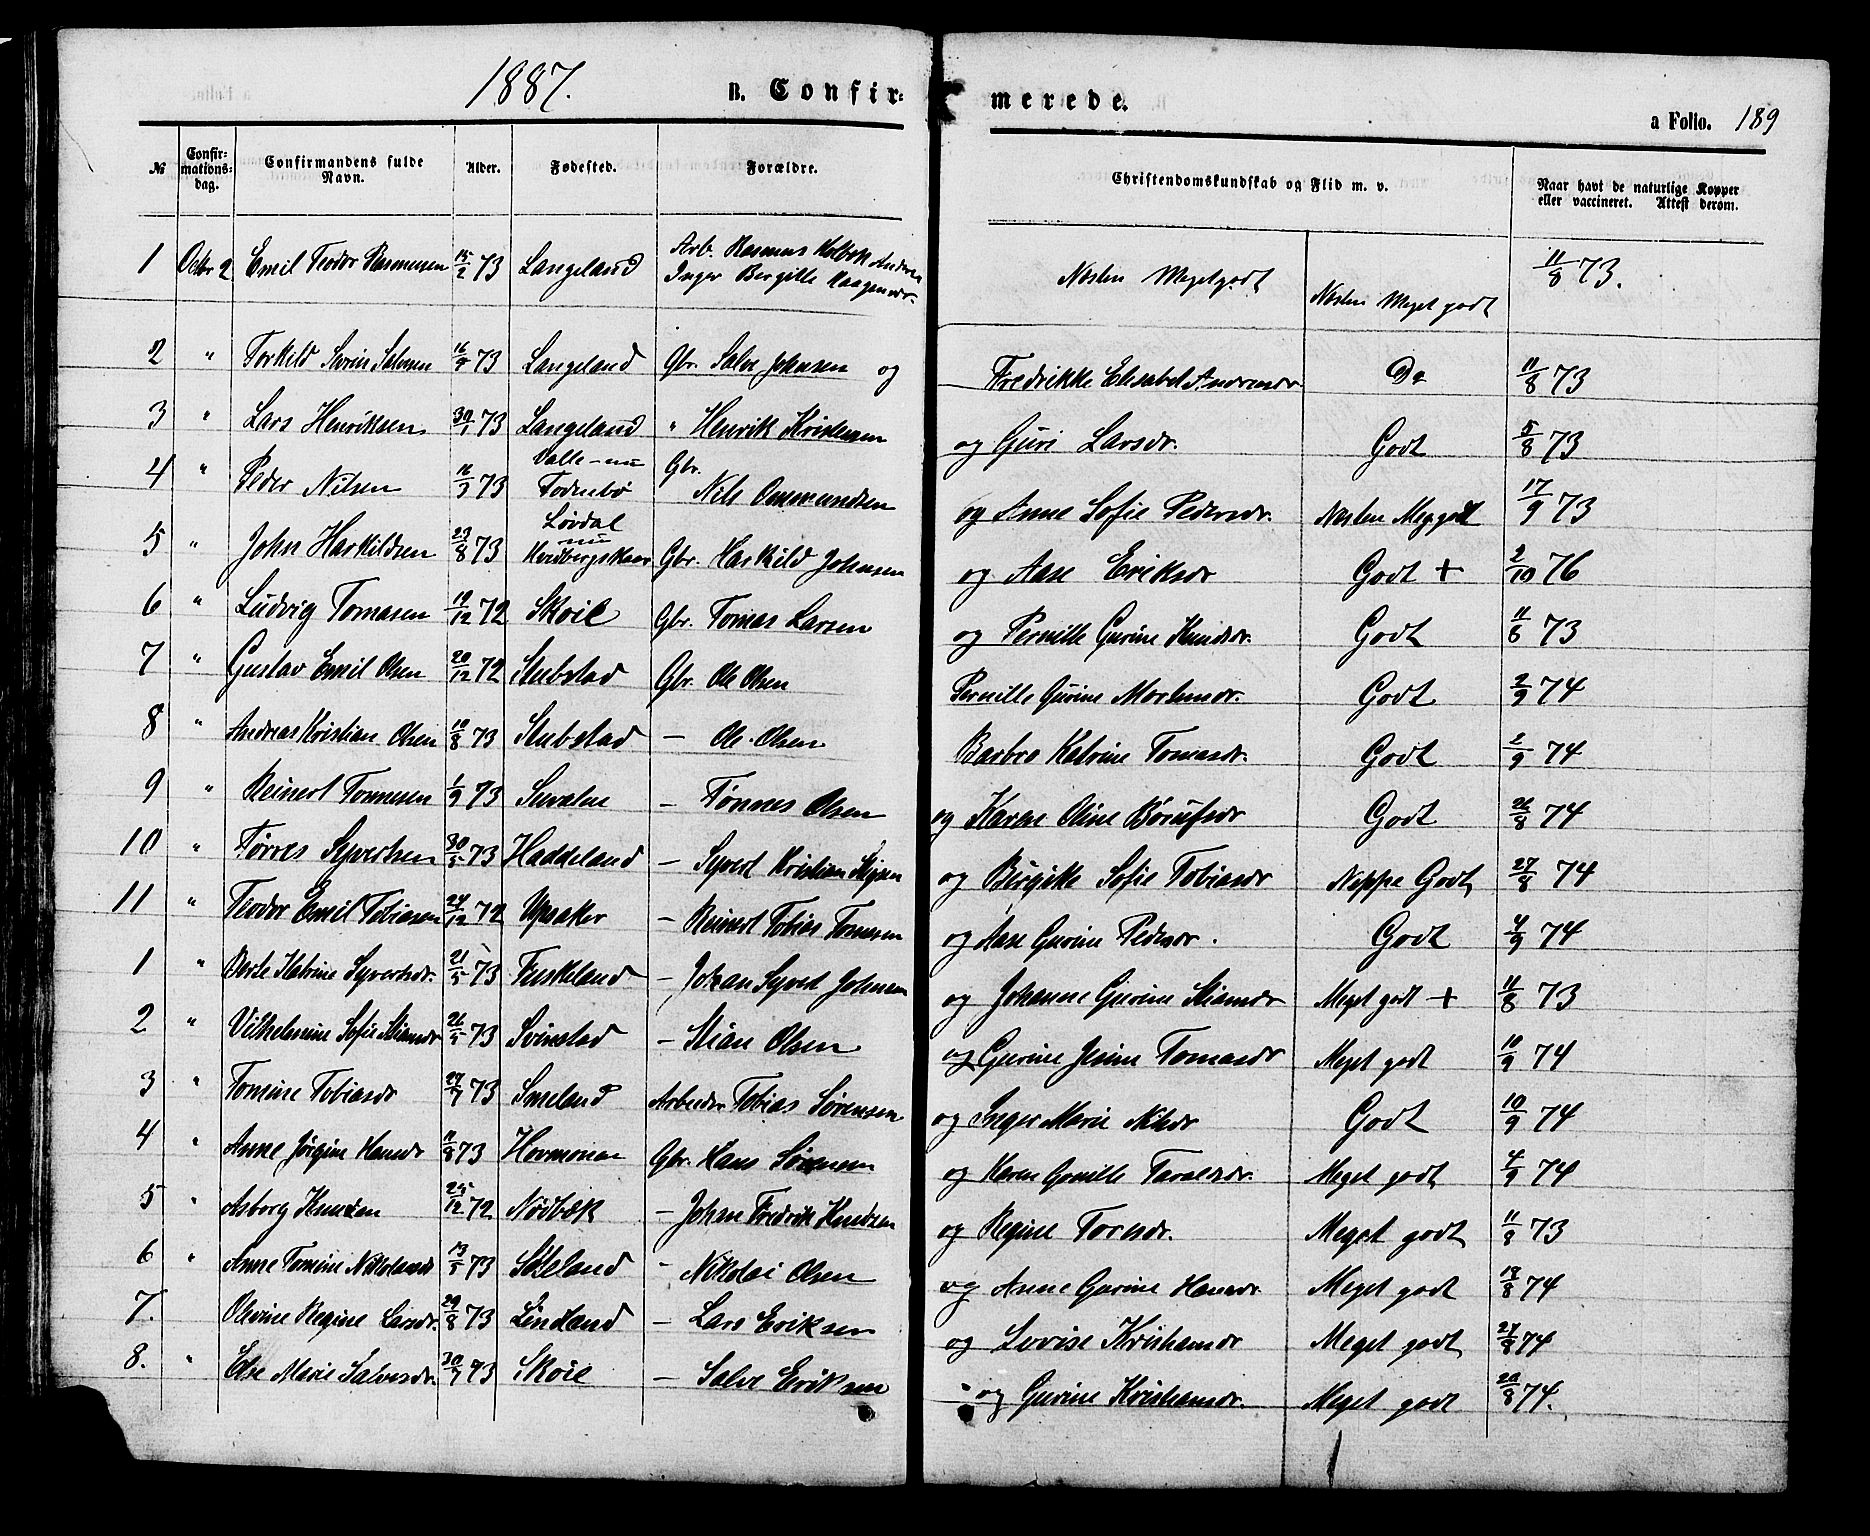 1887.
B. Confir-
merede.
a Folio. 189
№ Confir-mations-dag. Confirmandens fulde Navn. Alder. Fødested. Forældre. Christendomskundskab og Flid m. v. Naar havt de naturlige Kopper eller vaccineret. Attest derom.
1 Octbr 2 Emil Teodor Rasmusen 15/2 73 Langeland Arb. Rasmus Holbek Andersen Inger Bergitte Haagensdr. Næsten Megetgodt Næsten Meget godt 11/8 73.
2 " Torkild Sørin Salvesen 16/5 73 Langeland Gbr. Salve Johnsen og Fredrikke Elisabet Andersdr Do 11/8 73
3 " Lars Henriksen 30/1 73 Langeland " Henrik Kristensen og Guri Larsdr. Godt 5/8 73
4 " Peder Nilsen 16/3 73 Valle - nu Fodnebø Gbr. Nils Ommundsen og Anne Sofie Pedersdr. Næsten Meg godt 17/9 73
5 " John Harkildsen 23/8 73 Lovdal nu Kvidbergskaar Gbr. Harkild Johnsen og Aase Eriksdr Godt + 2/10 76
6 " Ludvig Tomasen 19/12 72 Skoie Gbr. Tomas Larsen og Pernille Gurine Knudsdr. Godt 11/8 73
7 " Gustav Emil Olsen 20/12 72 Stubstad Gbr. Ole Olsen Pernille Gurine Mortensdr. Godt 2/9 74
8 " Andreas Kristian Olsen 10/8 73 Stubstad — Ole Olsen Barbro Katrine Tomasdr. Godt 2/9 74
9 " Reinert Tønnesen 1/9 73 — Tønnes Olsen og Karen Oline Børufsdr Godt 26/8 74
10 " Tørres Syvertsen 30/5 73 Haddeland — Syvert Kristian og Birgitte Sofie Tobiasdr Neppe Godt 27/8 74
11 " Teodor Emil Tobiasen 24/12 72 Upsaker — Reinert Tobias Tomesen og Aase Gurine Pedersdr. Godt 4/9 74
1 " Berte Katrine Syvertsdr. 21/5 73 Fuskeland — Johan Syvert Johnsen og Johanne Gurine Stiansdr Meget godt + 11/8 73
2 " Vilhelmine Sofie Stiansdr 26/5 73 Svinstad — Stian Olsen og Gurine Jesine Tomasdr Meget godt 10/9 74
3 " Tomine Tobiasdr 27/7 73 Smeland Arbeider Tobias Sørensen og Inger Marie Nilsdr Godt 10/9 74
4 " Anne Jørgine Hansdr 11/8 73 Hormonen Gbr. Hans Sørensen og Karen Gunille Taraldsdr. Meget godt 4/9 74
5 " Asborg Knudsen 25/12 72 Nødbæk — John Fredrik Knudsen og Regine Toresdr. Meget godt 11/8 73
6 " Anne Tomine Nikolaisdr 13/5 73 — Nikolai Olsen og Anne Gurine Hansdr. Meget godt 18/8 74
7. " Olevine Regine Larsdr. 29/8 73 Lindland — Lars Eriksen og Lovise Kristiansdr Meget godt 27/8 74
8. " Else Marie Salvesdr. 30/7 73 Skoie — Salve Eriksen og Gurine Kristiansdr. Meget godt 20/8 74.